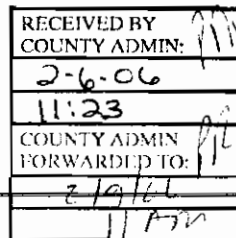 RECEIVED BY
COUNTY ADMIN:
2-6-06
11:23
COUNTY ADMIN
FORWARDED TO:
11 Am